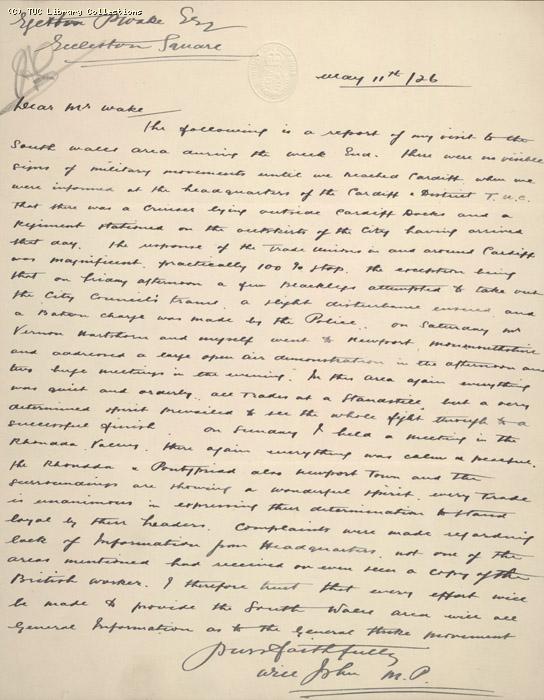 (C) TUC Library Collections
Egerton P Wake Esq
Eccleston Square
May 11th/26
Dear Mr Wake
The following is a report of my visit to the
South Wales area during the week End. There were no visible
signs of military movements until we reached Cardiff, when we
were informed at the headquarters of the Cardiff & District T.U.C.
that there was a Cruiser lying outside Cardiff Docks and a
Regiment stationed on the outskirts of the City having arrived
that day. The response of the Trade Unions in and around Cardiff
was magnificent, practically 100% stop, the exception being
that on Friday afternoon a few Blacklegs attempted to take out
the City Council's trams, a slight disturbance ensued, and
a Baton charge was made by the Police. On Saturday Mr
Vernon Hartshorn and myself went to Newport, Monmouthshire
and addressed a large open air demonstration in the afternoon and
two huge meetings in the evening. In this area again everything
was quiet and orderly, all Trades at a Standstill, but a very
determined spirit prevailed to see the whole fight through to a
successful finish. On Sunday I held a meeting in the
Rhondda Valley. Here again everything was calm & peaceful.
The Rhondda & Pontypridd also Newport Town and the
surroundings are showing a wonderful spirit, every Trade
is unanimous in expressing their determination to stand
loyal by their Leaders. Complaints were made regarding
lack of Information from Headquarters, not one of the
areas mentioned had received or even seen a copy of the
British Worker. I therefore trust that every effort will
be made to provide the South Wales area with all
General Information as to the General Strike movement
Yours faithfully
Will John M.P.